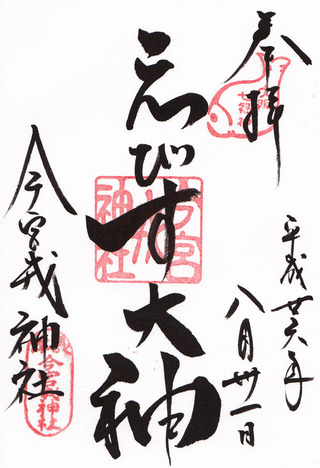 奉拝
大阪七福神
平成廿六年
八月卅一日
ゑびす大神
今宮戎神社
今宮戎神社
今宮戎神社